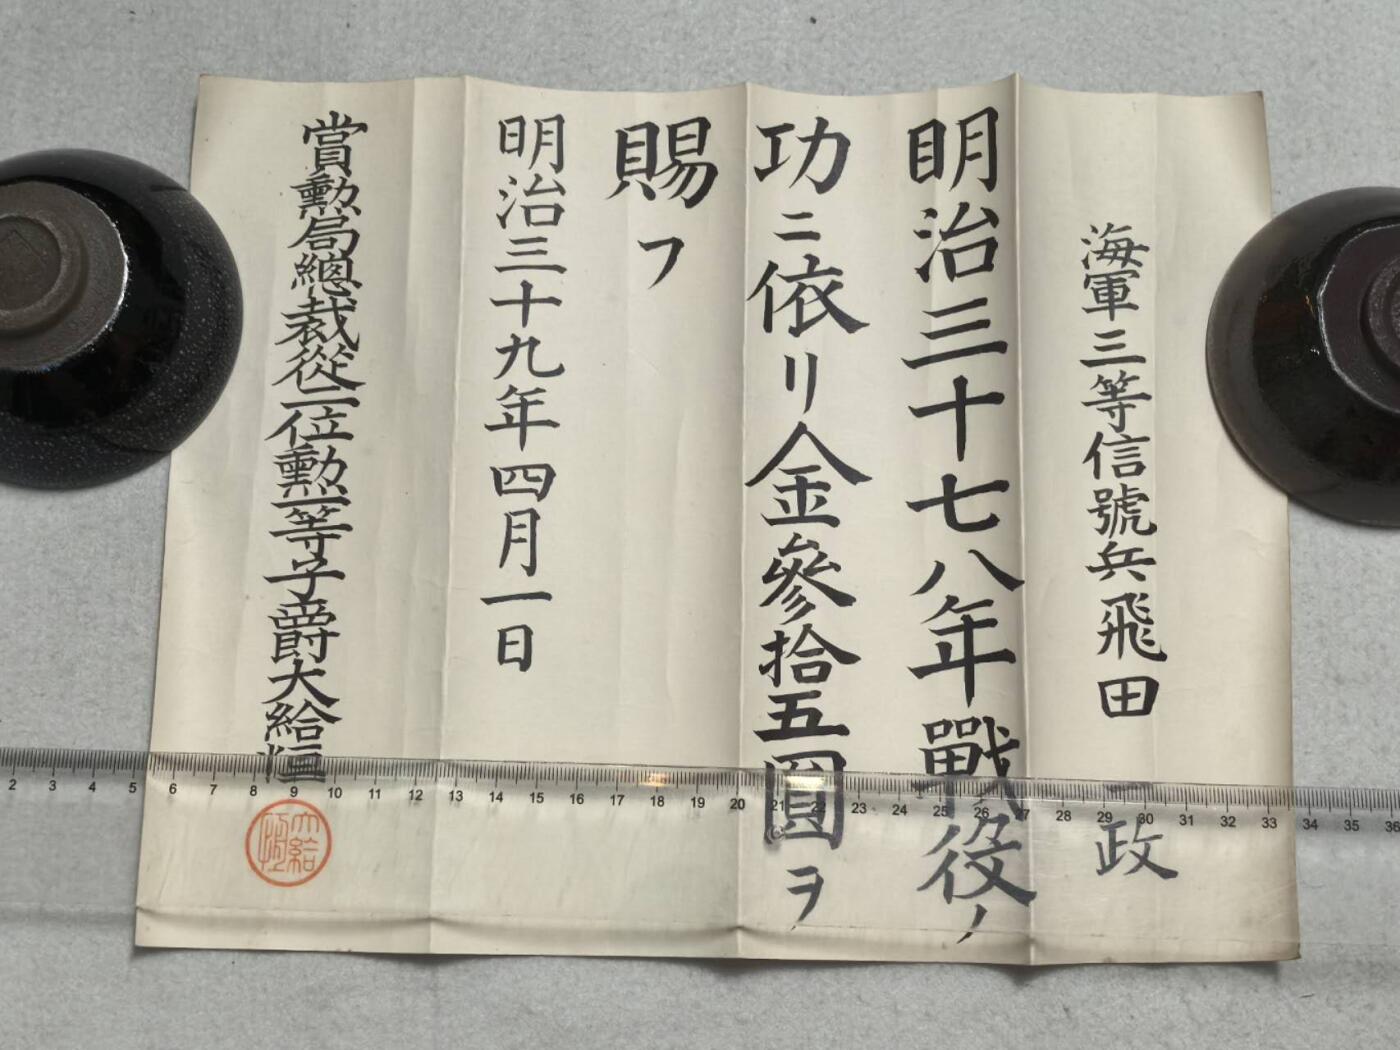 海軍三等信號兵飛田一政
明治三十七八年戰役ノ
功ニ依リ金參拾五圓ヲ
賜フ
明治三十九年四月一日
賞勲局總裁從二位勲一等子爵大給恒
大給恒
2 3 4 5 6 7 8 9 10 11 12 13 14 15 16 17 18 19 20 21 22 23 24 25 26 27 28 29 30 31 32 33 34 35 36